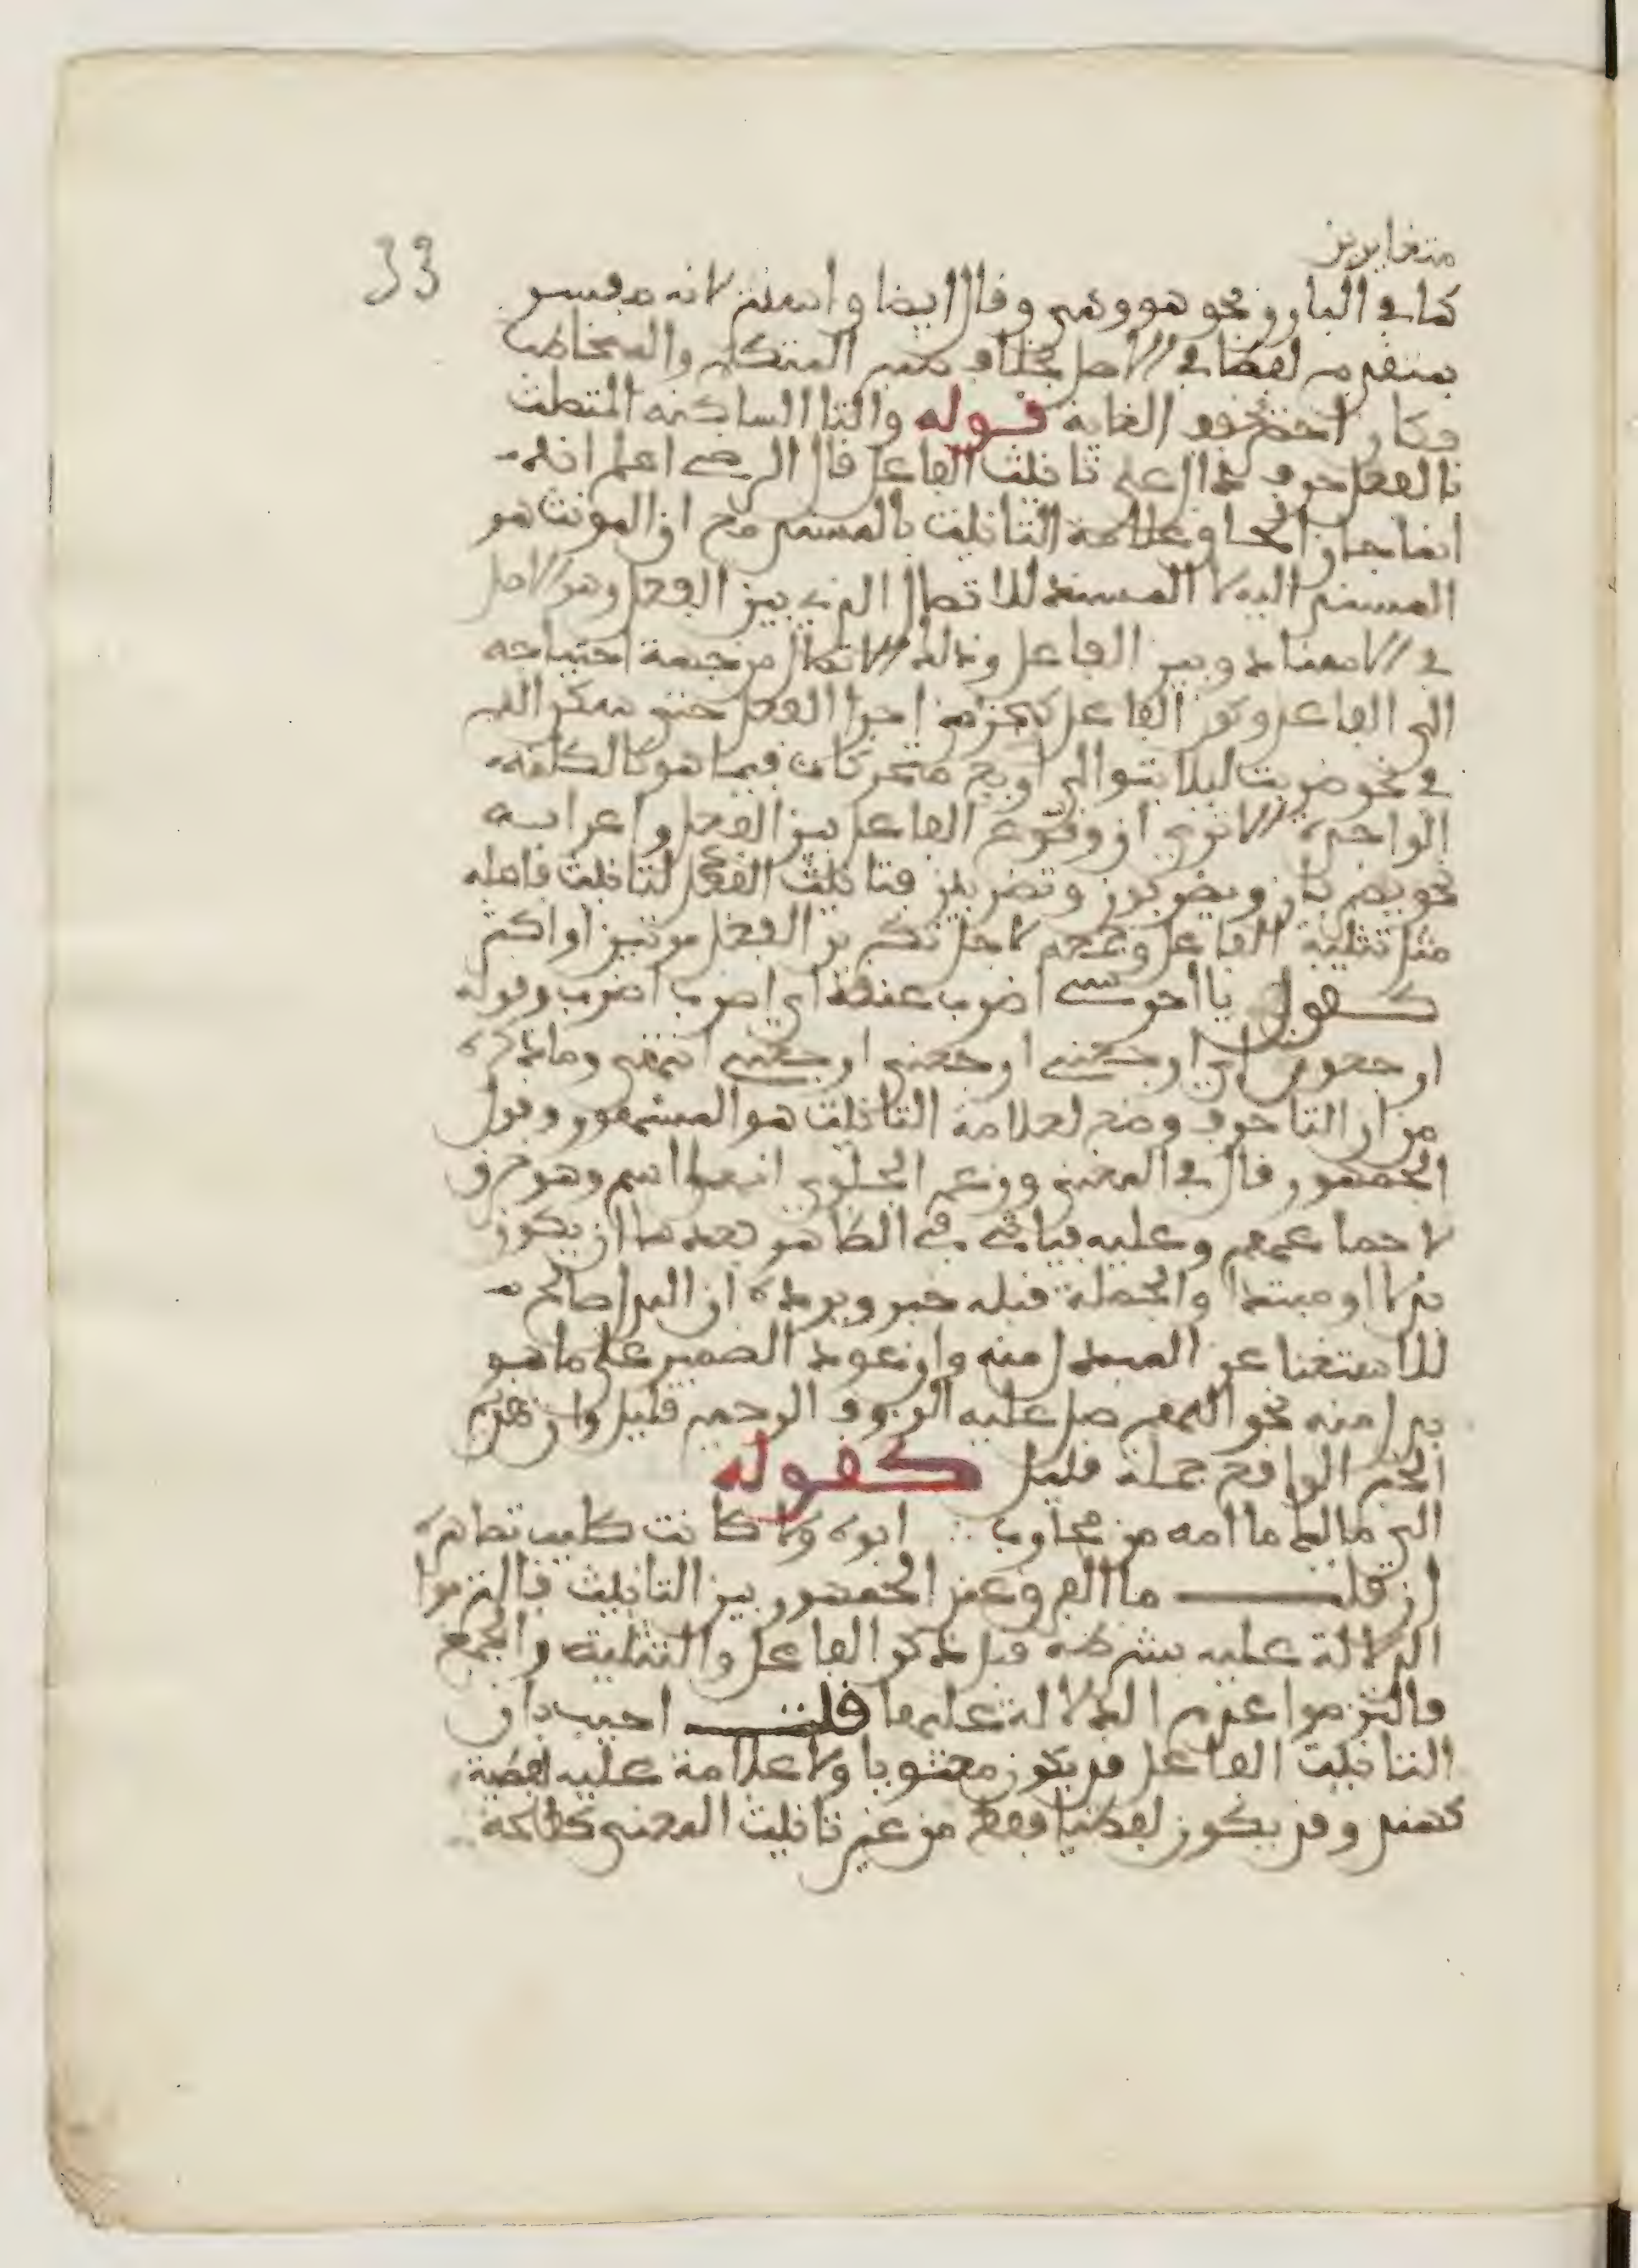 متغايرين
33
كما في البارز نحو هو وهي وقال ايضا واستتر لانه مفسر
بمتقدم لفظا في الاصل بخلاف ضمير المتكلم والمخاطب
فكان اخف قوله والتا الساكنة المتصلة
بالفعل حرف دال على تانيث الفاعل قال الرضي اعلم انه
انما جاز الحاق علامة التانيث بالمسند مع ان المونث هو
المسند اليه لا المسند للاتصال الذي بين الفعل وهو الاصل
في الاسناد وبين الفاعل وذلك الاتصال من جهة احتياجه
الى الفاعل وكون الفاعل كجزء من اجزا الفعل حتى سكن اللام
في نحو ضربت ليلا يتوالى اربع متحركات فيما هو كالكلمة
الواحدة الا ترى ان وقوع الفاعل بين الفعل واعرابه
نحو يضربان ويضربون وتضربين فتانيث الفعل لتانيث فاعله
مثل تثنية الفاعل وجمعه لاجل تكرير الفعل مرتين او اكثر
كقول يا احرسي اضرب عنقه اي اضرب اضرب وقوله
ارجعون اي ارجعني ارجعني ارجعني انتهى وما ذكره
من ان التا حرف وضع لعلامة التانيث هو المشهور وقول
الجمهور قال في المغني وزعم الجلولي انها اسم وهو خرق
لاجماعهم وعليه فياتي في الظاهر بعدها ان يكون
بدلا او مبتدا والجملة قبله خبر ويرده ان البدل صالح
للاستغنا عن المبدل منه وان عود الضمير على ما هو
بدل منه نحو اللهم صل عليه الرءوف الرحيم قليل وان تقدم
الخبر الواقع جملة قليل كقوله
الى مالك ما امه من محارب ∴ ابوه ولا كانت كليب تصاهره
ان قلت ما الفرق عند الجمهور بين التانيث فالتزموا
الدلالة عليه بشرطه قبل ذكر الفاعل والتثنية والجمع
فالتزموا عدم الدلالة عليهما قلت اجيب بان
التانيث الفاعل قد يكون معنويا ولا علامة عليه لفظية
كهند وقد يكون لفظيا فقط من غير تانيث المعنى كطلحة